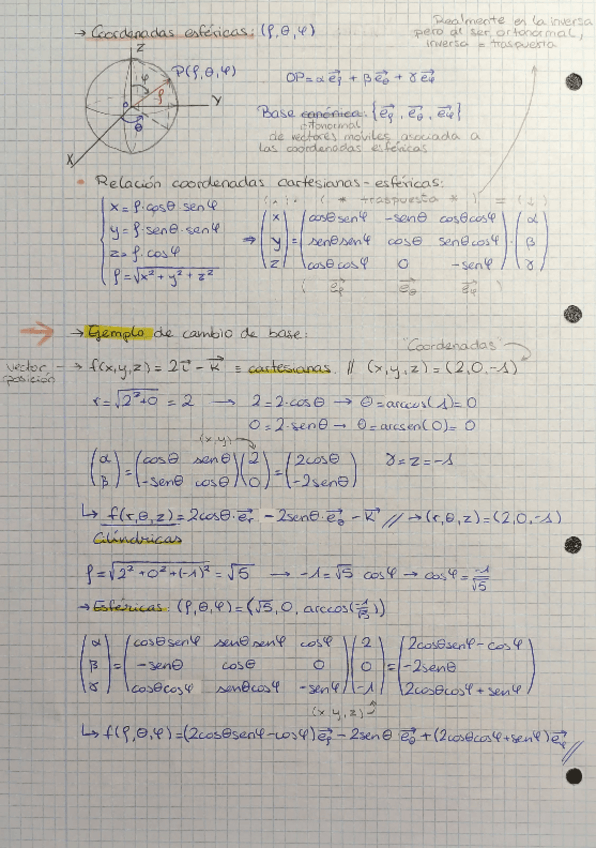 → Coordenadas esféricas: (ρ, θ, φ)
Realmente es la inversa
pero al ser ortonormal,
inversa = traspuesta
Z
φ
P(ρ, θ, φ)
ρ
Y
θ
X
OP = α e⃗ρ + β e⃗θ + γ e⃗φ
Base canónica: {e⃗ρ, e⃗θ, e⃗φ}
ortonormal
de vectores móviles asociada a
las coordenadas esféricas
• Relación coordenadas cartesianas-esféricas:
( * traspuesta * )
x = ρ·cosθ·senφ
y = ρ·senθ·senφ
z = ρ·cosφ
ρ = √x² + y² + z²
⇒ (x) = (cosθsenφ -senθ cosθcosφ) · (α)
(y) (senθsenφ cosθ senθcosφ) (β)
(z) (cosθcosφ 0 -senφ) (γ)
( e⃗ρ e⃗θ e⃗φ )
→ Ejemplo de cambio de base:
"Coordenadas"
vector posición → f(x,y,z) = 2i⃗ - k⃗ ≡ cartesianas. // (x,y,z) = (2,0,-1)
r = √2²+0 = 2 → 2 = 2·cosθ → θ = arccos(1) = 0
0 = 2·senθ → θ = arcsen(0) = 0
(x,y)
(α) = (cosθ senθ) (2) = (2cosθ) γ = z = -1
(β) (-senθ cosθ) (0) (-2senθ)
↳ f(r,θ,z) = 2cosθ·e⃗r - 2senθ·e⃗θ - k⃗ // → (r,θ,z) = (2,0,-1)
Cilíndricas
ρ = √2²+0²+(-1)² = √5 → -1 = √5 cosφ → cosφ = -1/√5
→ Esféricas: (ρ,θ,φ) = (√5, 0, arccos(-1/√5))
(α) = (cosθsenφ senθsenφ cosφ) (2) = (2cosθsenφ - cosφ)
(β) (-senθ cosθ 0) (0) (-2senθ)
(γ) (cosθcosφ senθcosφ -senφ) (-1) (2cosθcosφ + senφ)
(x,y,z)
↳ f(ρ,θ,φ) = (2cosθsenφ - cosφ)e⃗ρ - 2senθ e⃗θ + (2cosθcosφ + senφ)e⃗φ //